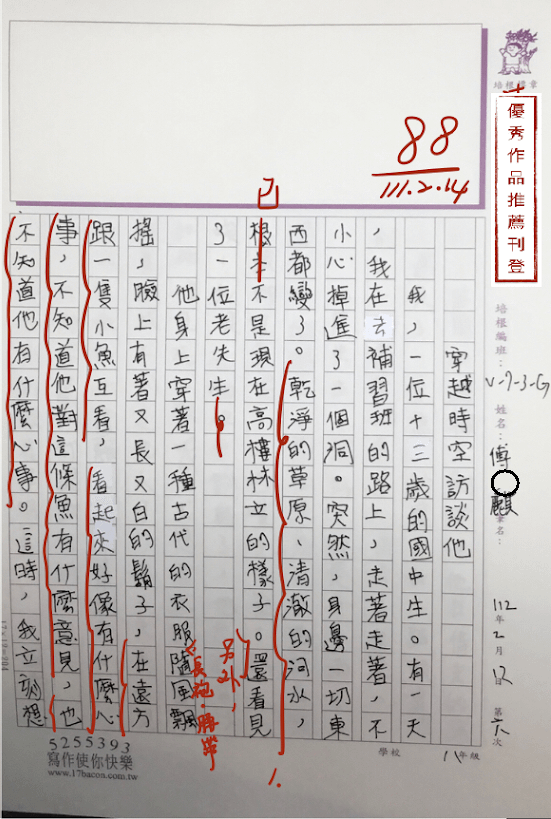 培根獎章
優秀作品推薦刊登
88
111.2.14
培根編班：
V-7-3-G
姓名：
傅
麒
112年2月12日 第六次
穿越時空訪談他
我，一位十三歲的國中生。有一天
，我在去補習班的路上，走著走著，不
小心掉進了一個洞。突然，身邊一切東
西都變了。乾淨的草原、清澈的河水，
根本不是現在高樓林立的樣子。還看見
了一位老先生。
已
另外，
他身上穿著一種古代的衣服隨風飄
長袍、勝
搖，臉上有著又長又白的鬍子，在遠方
跟一隻小魚互看，看起來好像有什麼心
事，不知道他對這條魚有什麼意見，也
不知道他有什麼心事。這時，我立刻想
1.
學校
八年級
5255393
寫作使你快樂
www.17bacon.com.tw